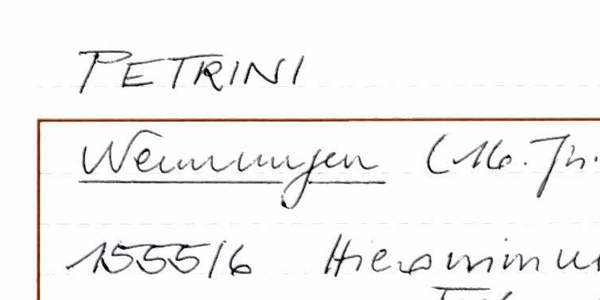 PETRINI
Nennungen (16. Jh.
1555/6 Hieronimu